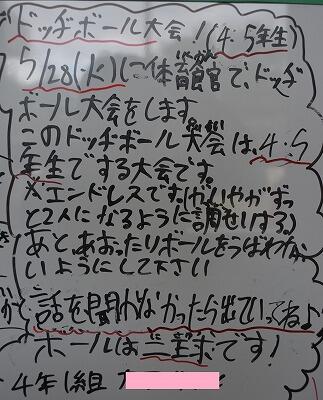 ドッヂボール大会!(4・5年生)
5/28(火)に体育館で、ドッヂ
たいいくかん
ボール大会をします
このドッヂボール大会は、4・5
年生でする大会です。
※エンドレスです。(がいやがずっ
と2人になるように調せいする)
あと、あおったりボールをうばわな
いようにして下さい
話を聞かなかったら出ていってねよ
ボールは三
です!
4年1組